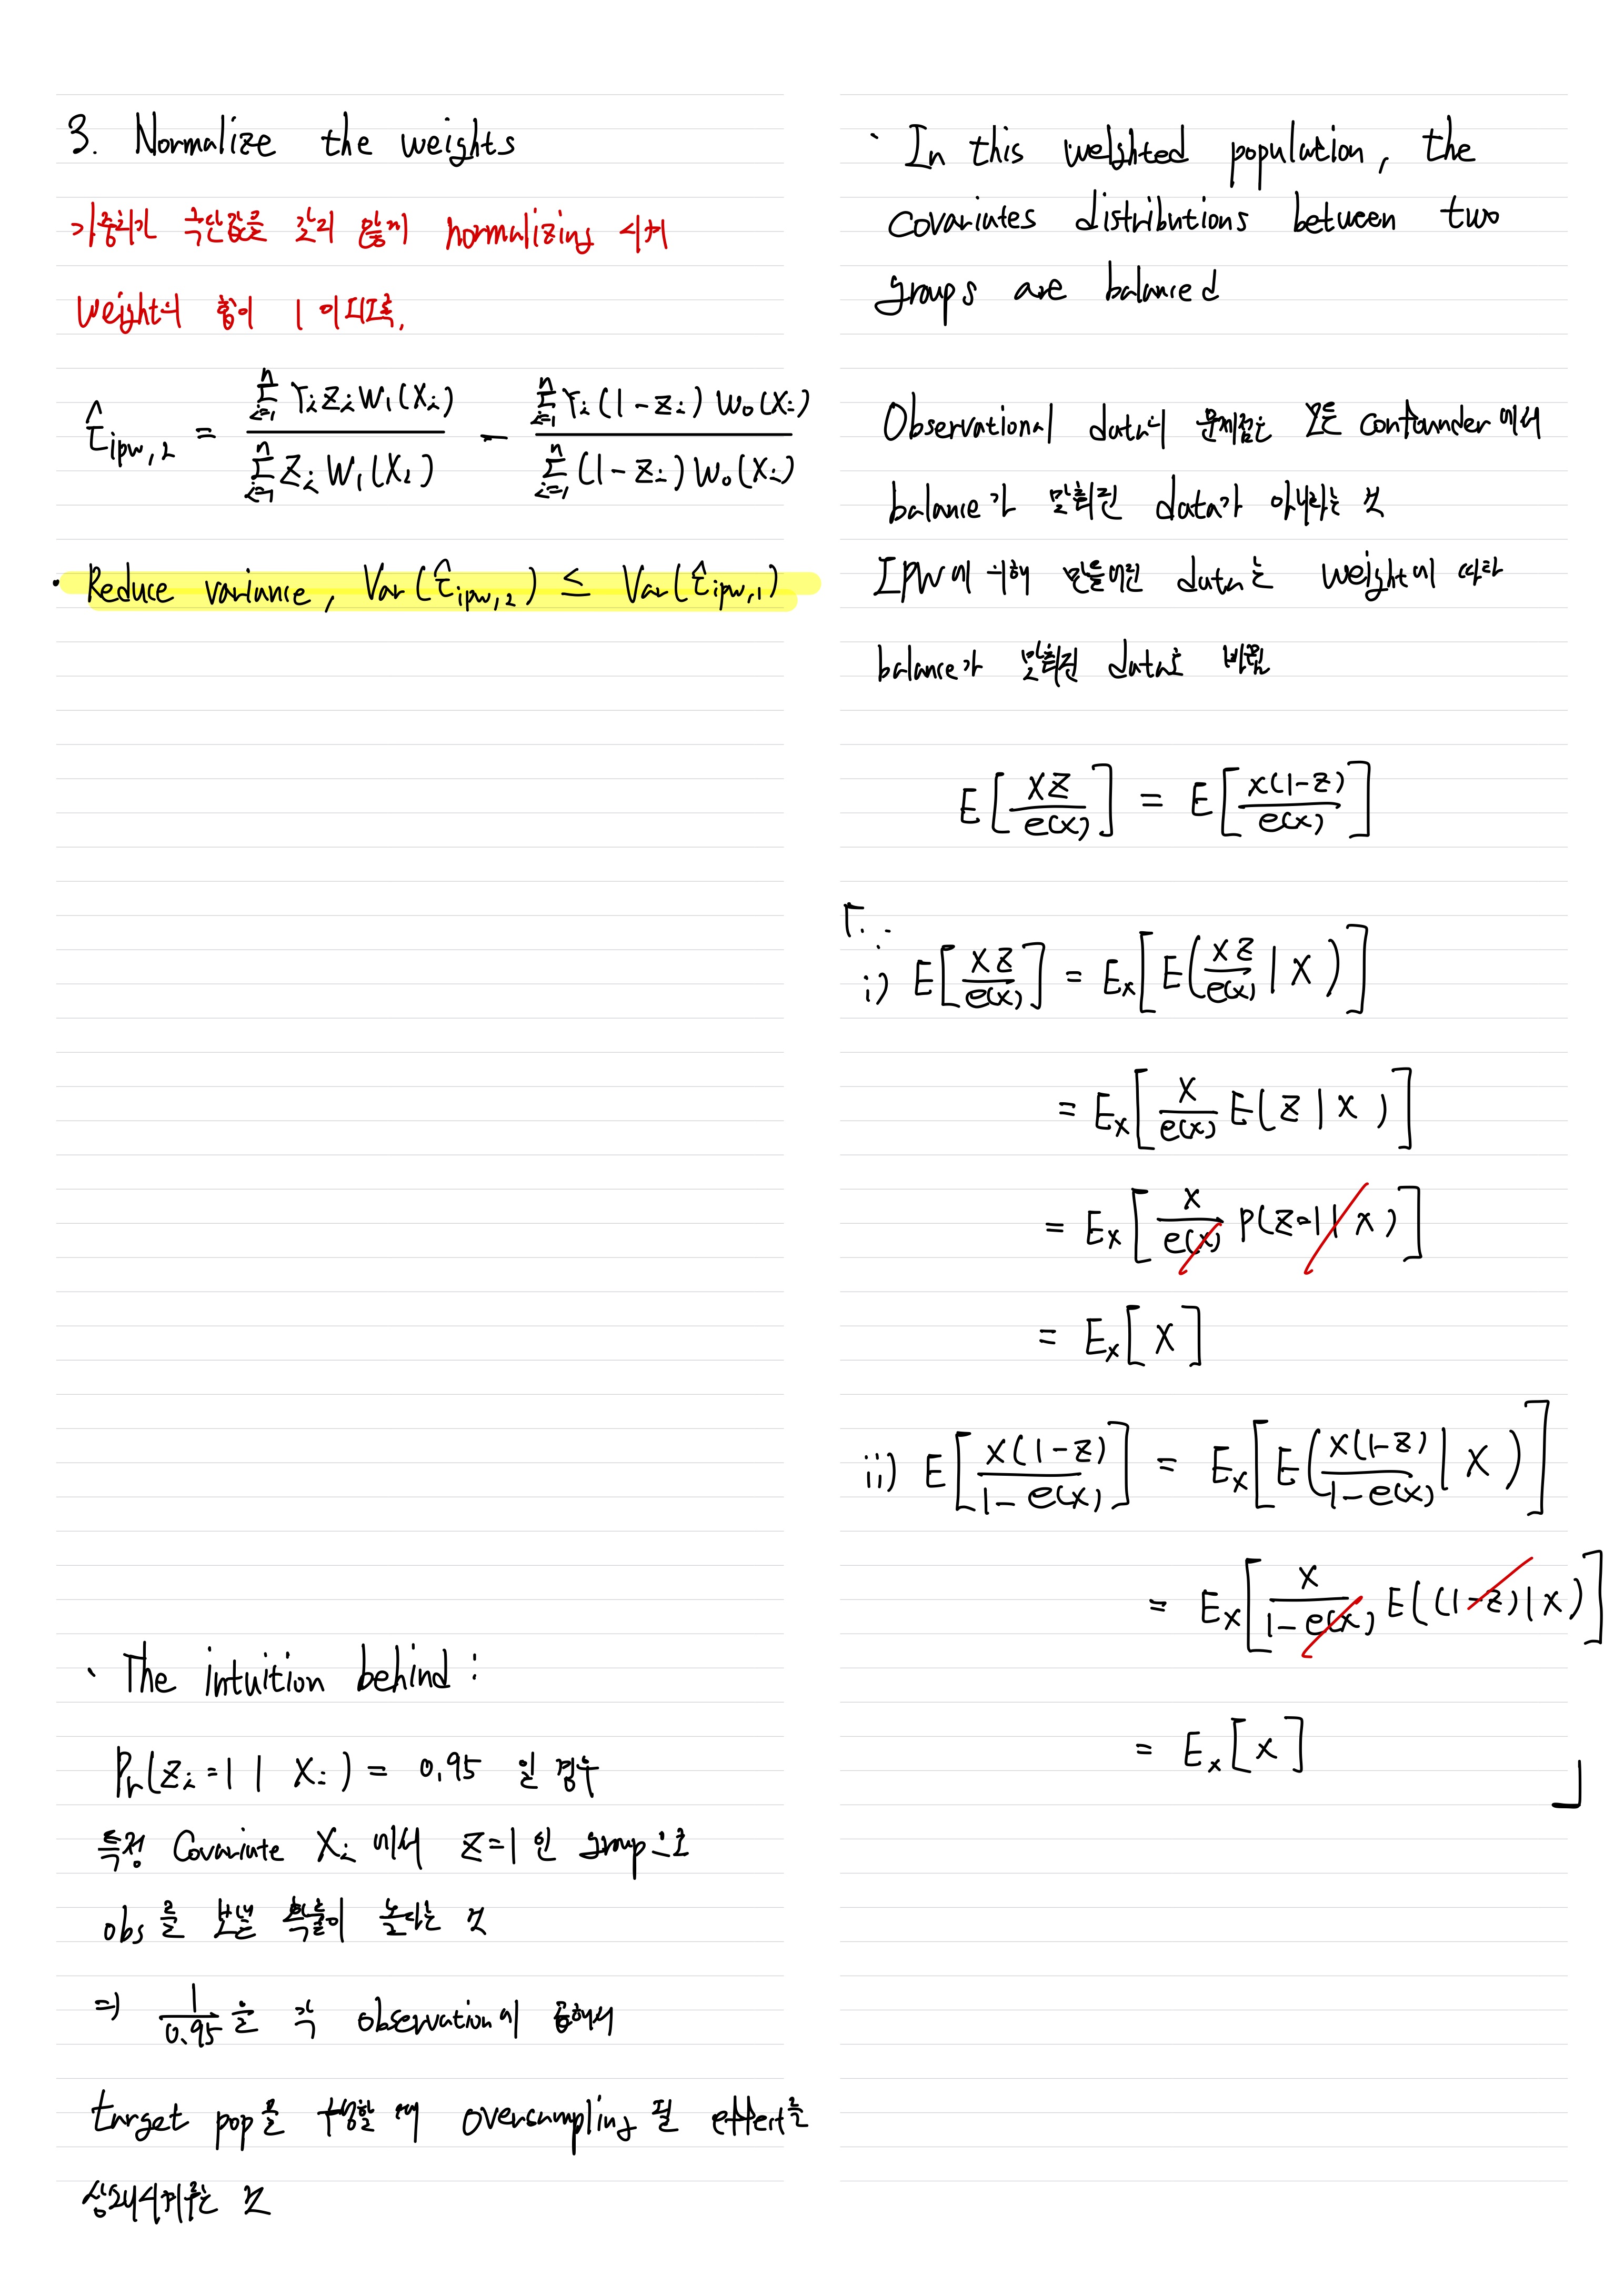 3. Normalize the weights
가중치가 극단값을 갖지 않게 normalizing 시켜
weight의 합이 1 이 되도록.
τ̂_{ipw,2} = \frac{\sum_{i=1}^{n} Y_i Z_i W_1(X_i)}{\sum_{i=1}^{n} Z_i W_1(X_i)} - \frac{\sum_{i=1}^{n} Y_i (1-Z_i) W_0(X_i)}{\sum_{i=1}^{n} (1-Z_i) W_0(X_i)}
· Reduce variance, Var(τ̂_{ipw,2}) ≤ Var(τ̂_{ipw,1})
· The intuition behind :
Pr(Z_i = 1 | X_i) = 0.95 일 경우
특정 Covariate X_i 에서 Z=1 인 group으로
obs를 보낼 확률이 높다는 것
⇒ \frac{1}{0.95}을 각 observation에 곱해서
target pop을 구성할 때 oversampling 될 effect를
상쇄시켜주는 것
· In this weighted population, the
covariates distributions between two
groups are balanced
Observational data의 문제점은 모든 confounder에서
balance가 맞춰진 data가 아니라는 것
IPW에 의해 만들어진 data는 weight에 따라
balance가 맞춰진 data로 바뀜
E[\frac{XZ}{e(x)}] = E[\frac{X(1-Z)}{e(x)}]
「∵
i) E[\frac{XZ}{e(x)}] = E_x[E(\frac{XZ}{e(x)} | X)]
= E_x[\frac{X}{e(x)} E(Z | X)]
= E_x[\frac{X}{e(x)} P(Z=1 | X)]
= E_x[X]
ii) E[\frac{X(1-Z)}{1-e(x)}] = E_x[E(\frac{X(1-Z)}{1-e(x)} | X)]
= E_x[\frac{X}{1-e(x)} E((1-Z) | X)]
= E_x[X]
」